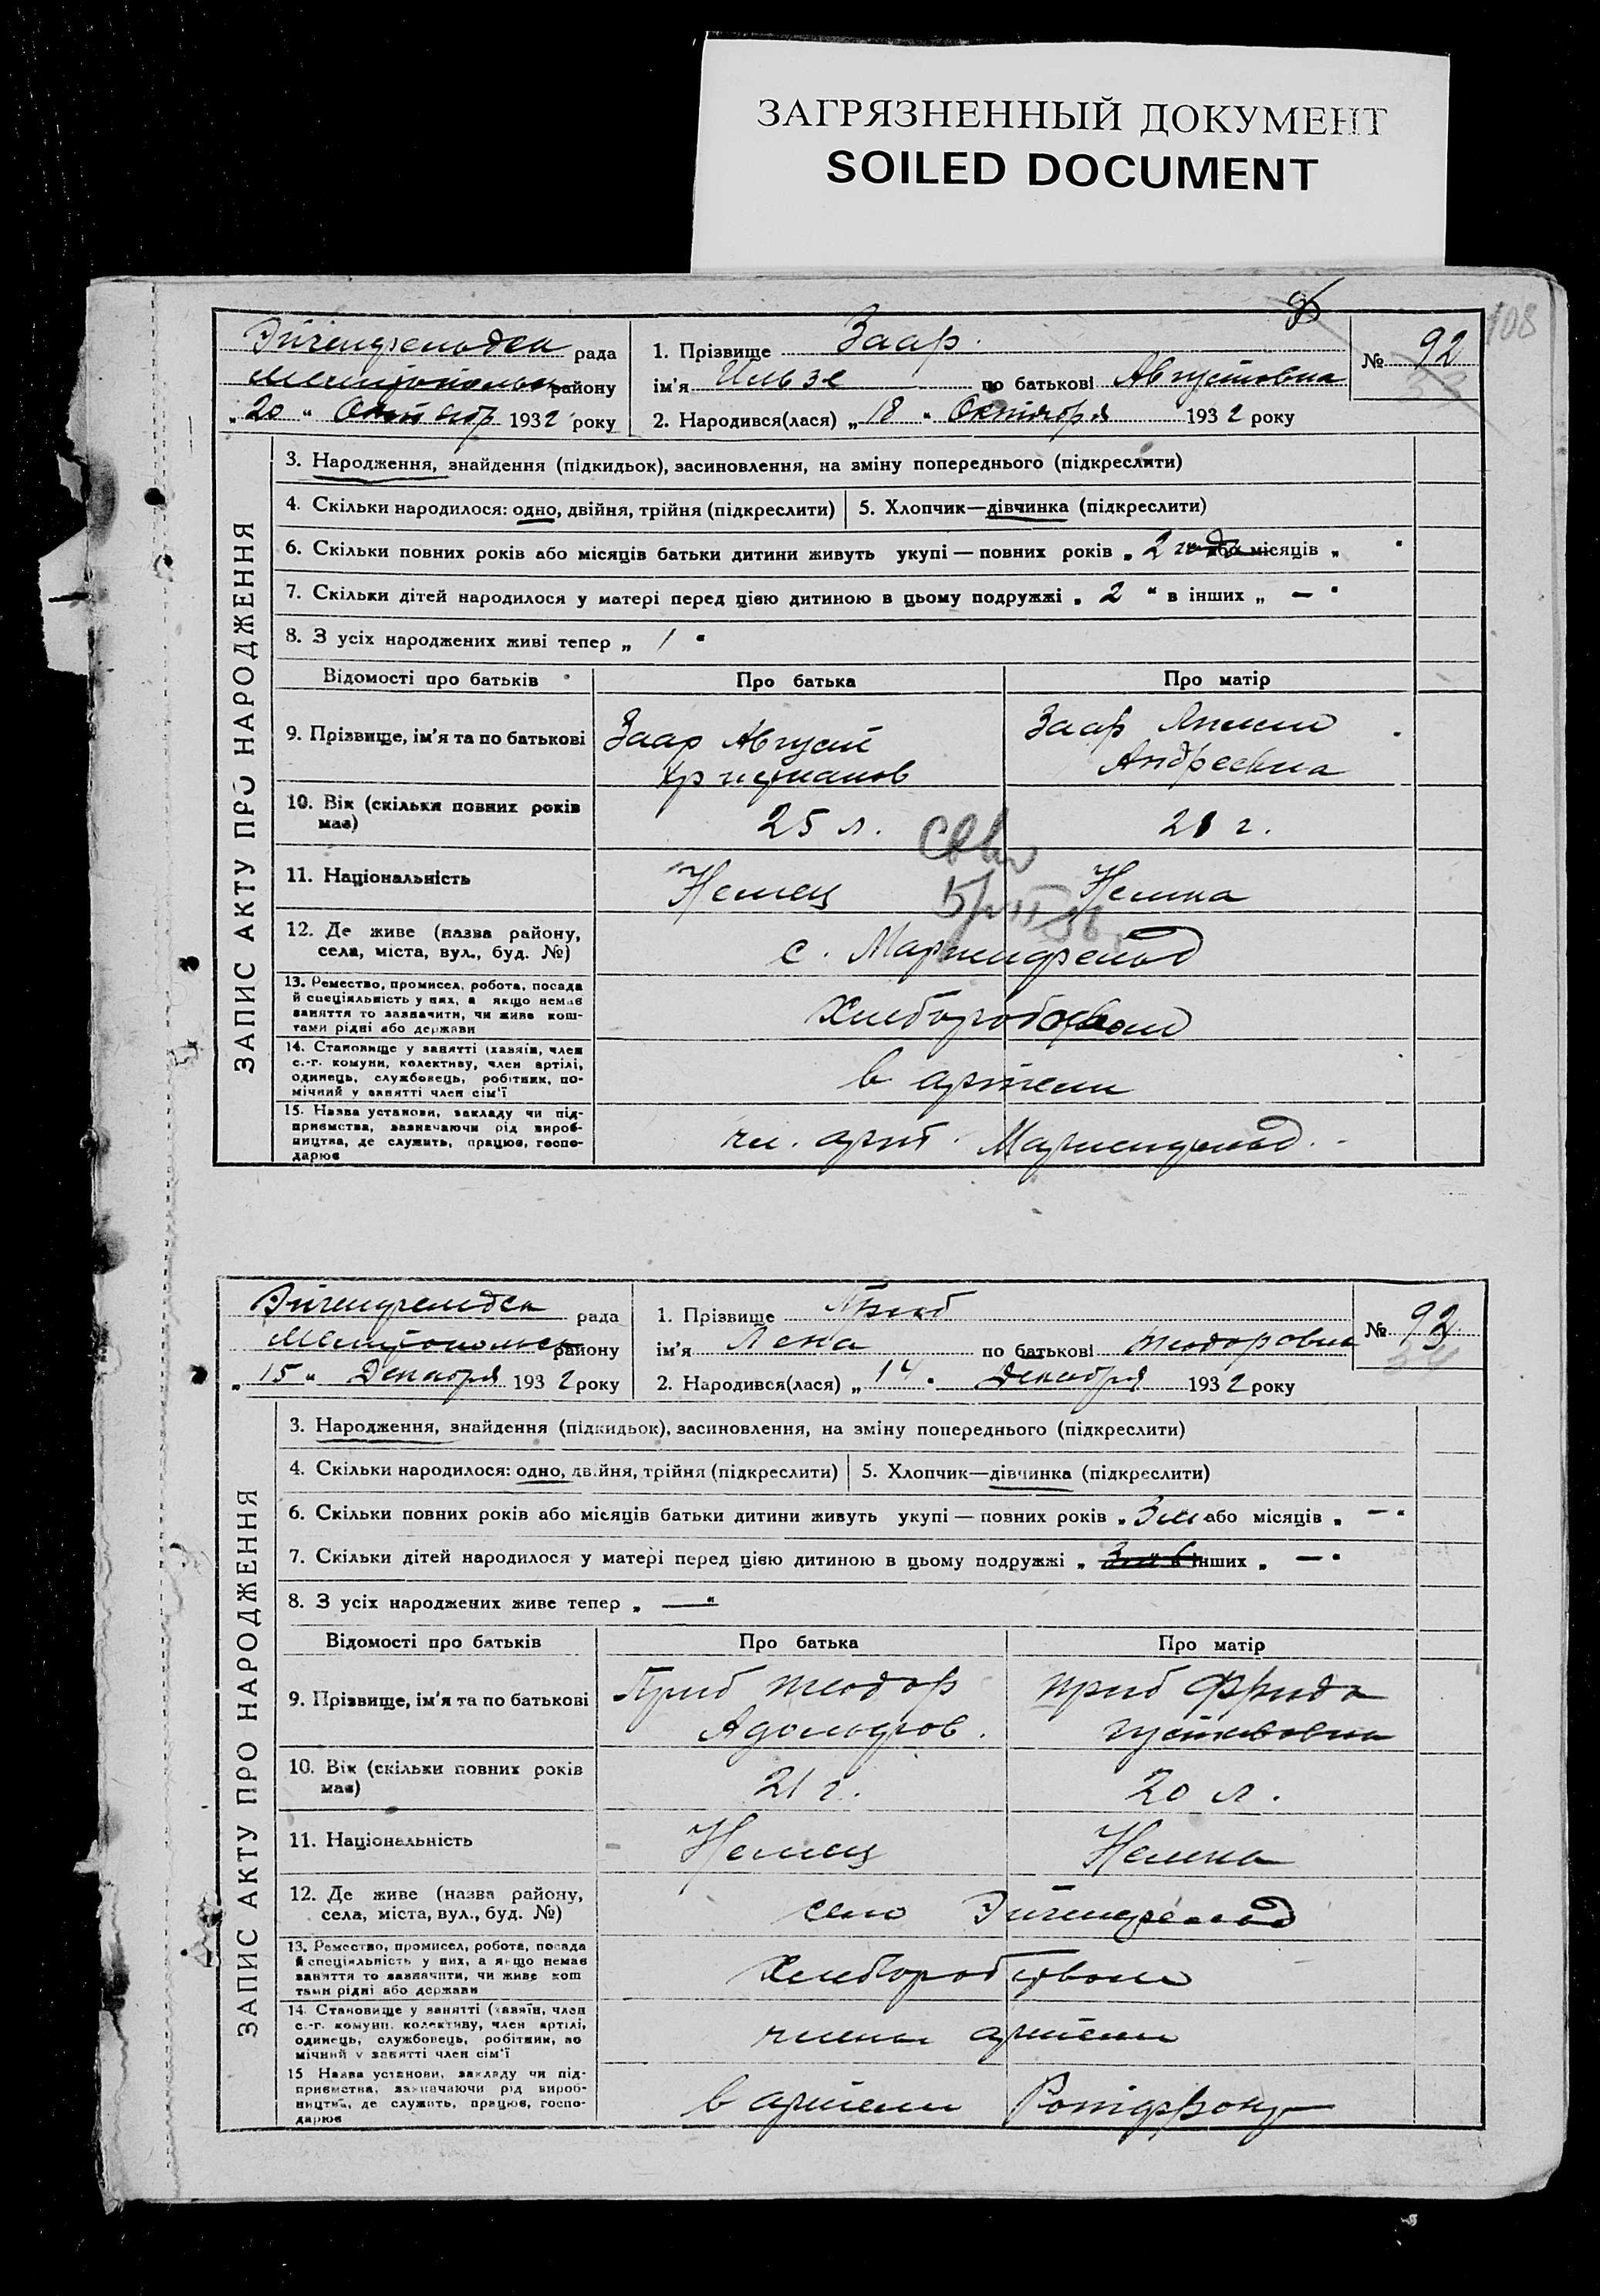 ЗАГРЯЗНЕННЫЙ ДОКУМЕНТ
SOILED DOCUMENT
108
Эйгенфельдск рада
Мелитопольск району
„20“ Октябр 1932 року
1. Прізвище Заар.
ім'я Ильзе по батькові Августовна
2. Народився(лася) „18“ Октября 1932 року
№ 92
ЗАПИС АКТУ ПРО НАРОДЖЕННЯ
3. Народження, знайдення (підкидьок), засиновлення, на зміну попереднього (підкреслити)
4. Скільки народилося: одно, двійня, трійня (підкреслити)
5. Хлопчик—дівчинка (підкреслити)
6. Скільки повних років або місяців батьки дитини живуть укупі — повних років „2 года або місяців „
7. Скільки дітей народилося у матері перед цією дитиною в цьому подружжі „2“ в інших „—“
8. З усіх народжених живі тепер „1“
Відомості про батьків Про батька Про матір
9. Прізвище, ім'я та по батькові
Заар Август
Заар
Андреевна
10. Вік (скільки повних років
має)
25 л.
21 г.
11. Національність
Немец
Немка
12. Де живе (назва району,
села, міста, вул., буд. №)
с. Мариенфельд
13. Ремество, промисел, робота, посада
й специіяльність у них, а якщо немає
заняття то зазначити, чи живе кош-
тами рідні або держави
Хлеборобством
14. Становище у занятті (хазяїн, член
с.-г. комуни, колективу, член артілі,
одинець, службовець, робітник, по-
мічний у занятті член сім'ї
в артели
15. Назва установи, закладу чи під-
приємства, зазначаючи рід вироб-
ництва, де служить, працює, госпо-
дарює
чл. арт. Мариенфельд.
Эйгенфельдск рада
Мелитопольск району
„15“ Декабря 1932 року
1. Прізвище Приб
ім'я Лена по батькові Теодоровна
2. Народився(лася) „14“ Декабря 1932 року
№ 92
34
ЗАПИС АКТУ ПРО НАРОДЖЕННЯ
3. Народження, знайдення (підкидьок), засиновлення, на зміну попереднього (підкреслити)
4. Скільки народилося: одно, двійня, трійня (підкреслити)
5. Хлопчик—дівчинка (підкреслити)
6. Скільки повних років або місяців батьки дитини живуть укупі — повних років „3 або місяців „—“
7. Скільки дітей народилося у матері перед цією дитиною в цьому подружжі „ в інших „—“
8. З усіх народжених живе тепер „—“
Відомості про батьків Про батька Про матір
9. Прізвище, ім'я та по батькові
Приб Теодор
Адольфов.
Приб Фрида
Густавовна
10. Вік (скільки повних років
має)
21 г.
20 л.
11. Національність
Немец
Немка
12. Де живе (назва району,
села, міста, вул., буд. №)
село Эйгенфельд
13. Ремество, промисел, робота, посада
й спеціяльність у них, а якщо немає
заняття то зазначити, чи живе кош
тами рідні або держави
Хлеборобством
14. Становище у занятті (хазяїн, член
с.-г. комуни, колективу, член артілі,
одинець, службовець, робітник, по
мічний у занятті член сім'ї
члены артели
15 Назва установи, закладу чи під-
приємства, зазначаючи рід вироб-
ництва, де служить, працює, госпо-
дарює
в артели Ротфронт